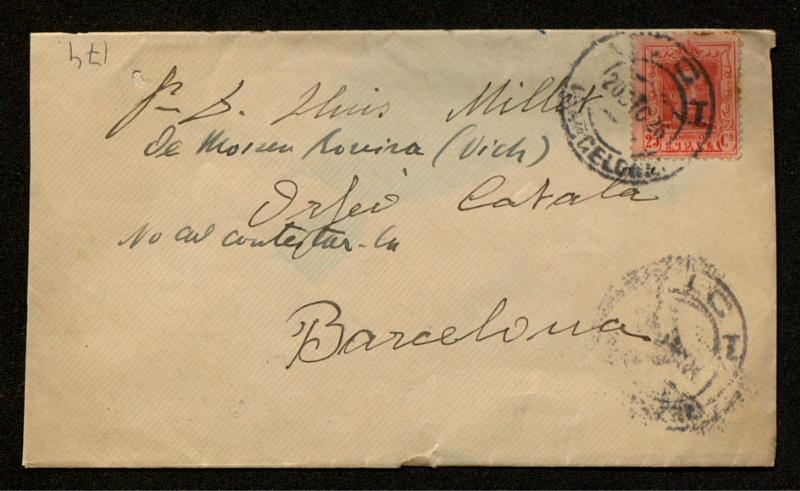 174
Sr. D. Lluis Millet
de Mossen Rovira (Vich)
Orfeó Català
No cal contestar-la
Barcelona
25 Cs
ESPAÑA
VIC
20 DIC 26